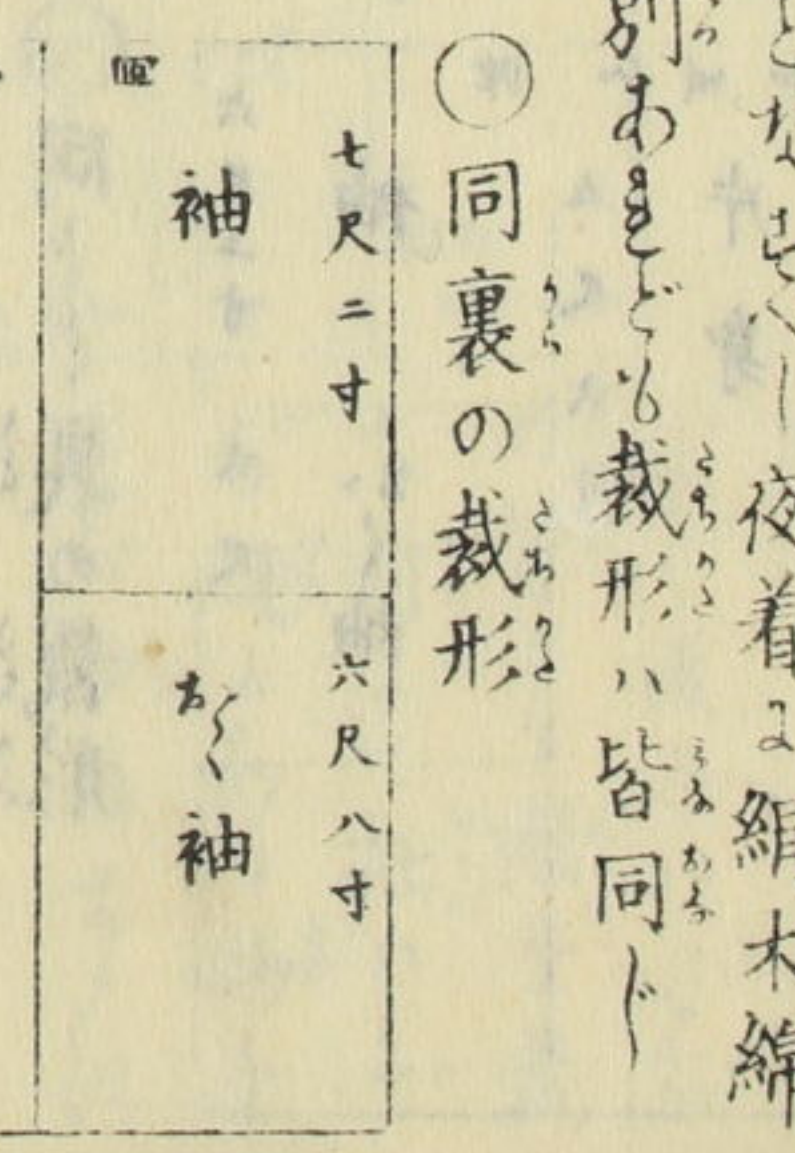 となすべし夜着に絹木綿
別あれども裁形ハ皆同じ
○同裏の裁形
七尺二寸
袖
六尺八寸
おく袖